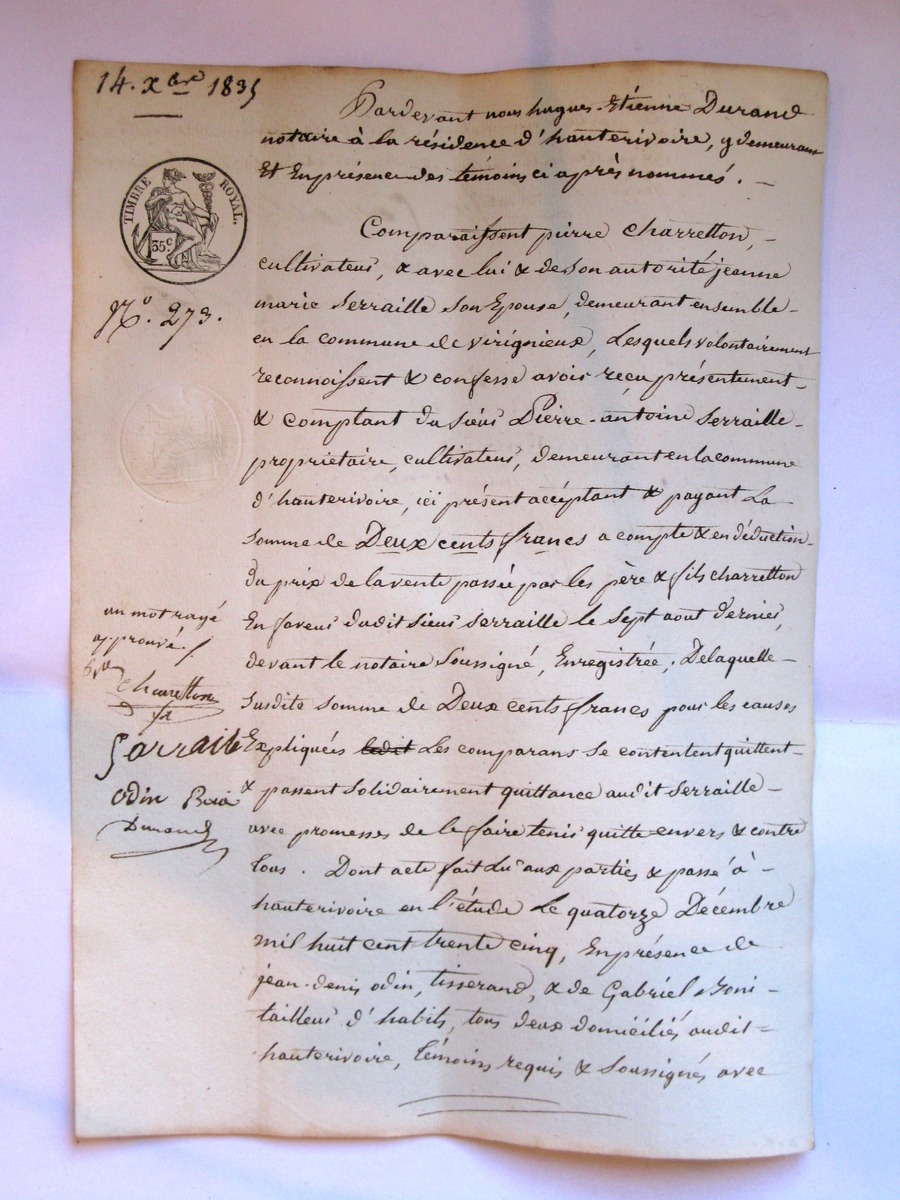 14. xbre 1835
Pardevant nous hugues-Etienne Durand
notaire à la résidence d'hauterivoire, y demeurant
Et En présence des témoins ci après nommés. -
TIMBRE ROYAL.
35c
Comparaissent pierre Charretton, -
cultivateur, & avec lui & de son autorité jeanne
marie Serraille son Epouse, demeurant ensemble -
No. 273.
en la commune de virignieux, Lesquels volontairement
reconnoissent & confesse avoir reçu présentement -
& comptant du sieur Pierre-antoine Serraille -
propriétaire, cultivateur, demeurant en la commune
d'hauterivoire, ici présent accéptant & payant La
Somme de Deux cents francs a compte & en déduction -
du prix de la vente passée par les père & fils charretton
En faveur dudit sieur Serraille le Sept aout dernier,
devant le notaire Soussigné, Enregistrée. De laquelle -
Susdite Somme de Deux cents francs pour les causes
Expliquées ledit Les comparans se contentent quittent -
& passent solidairement quittance audit Serraille -
avec promesses de le faire tenir quitte envers & contre
tous. Dont acte fait Lu aux parties & passé à -
hauterivoire en l'étude Le quatorze Décembre
mil huit cent trente cinq, En présence de
jean-denis odin, tisserand, & de Gabriel
tailleur d'habits, tous deux domiciliés audit -
hauterivoire, témoins requis & Soussignés avec
un mot rayé
approuvé.
Charretton
Sarraile
odin
Durand